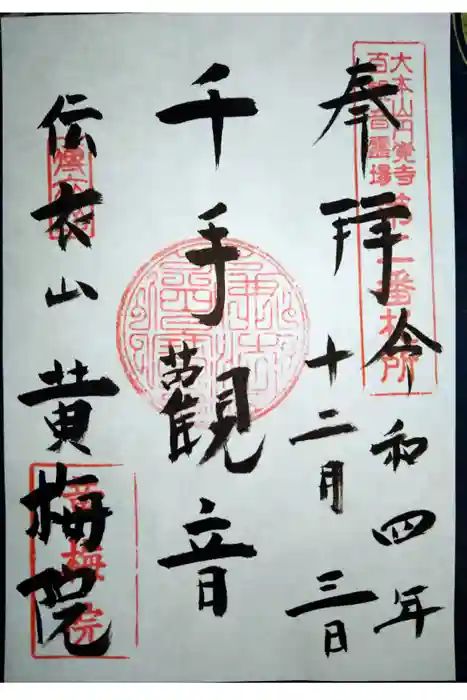 奉拝
令和四年
十二月三日
千手觀音
伝衣山
黄梅院
大本山円覚寺
百観音霊場
第二番札所
黄梅院